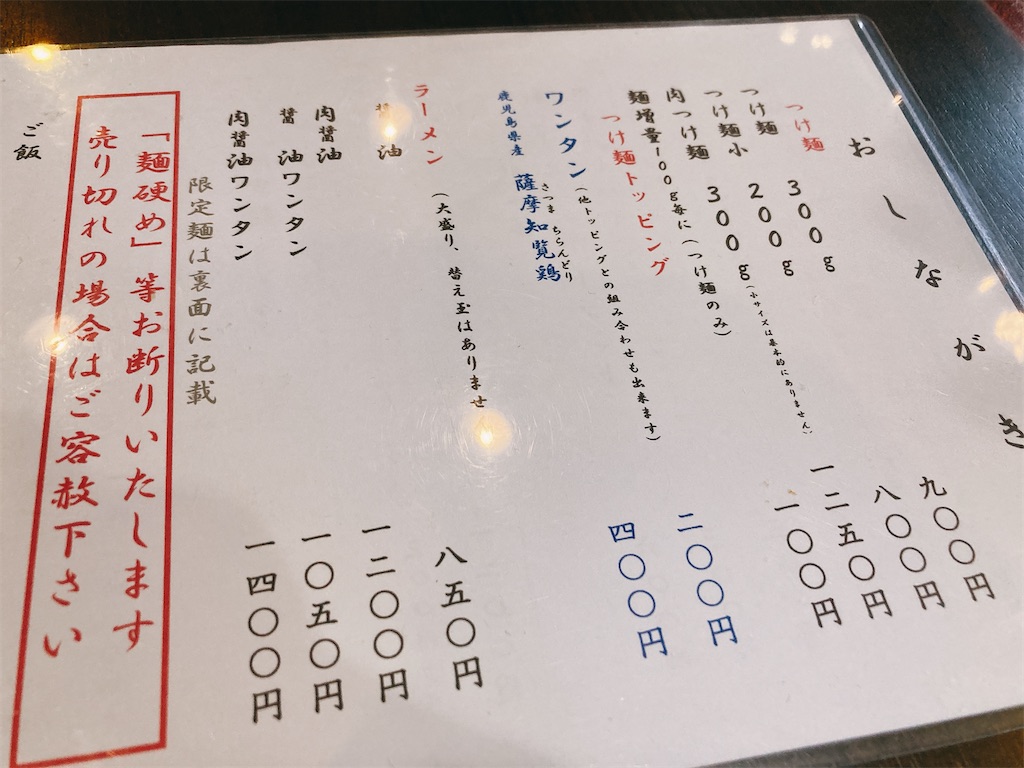 おしながき
つけ麺
つけ麺 300g 九〇〇円
つけ麺小 200g 八〇〇円
肉つけ麺 300g(小サイズは基本的にありません) 一二五〇円
麺増量100g毎に(つけ麺のみ) 一〇〇円
つけ麺トッピング
ワンタン(他トッピングとの組み合わせも出来ます) 二〇〇円
さつま ちらんどり
鹿児島県産 薩摩知覧鶏 四〇〇円
ラーメン (大盛り、替え玉はありませ
醤油 八五〇円
肉醤油 一二〇〇円
醤油ワンタン 一〇五〇円
肉醤油ワンタン 一四〇〇円
限定麺は裏面に記載
「麺硬め」等お断りいたします
売り切れの場合はご容赦下さい
ご飯